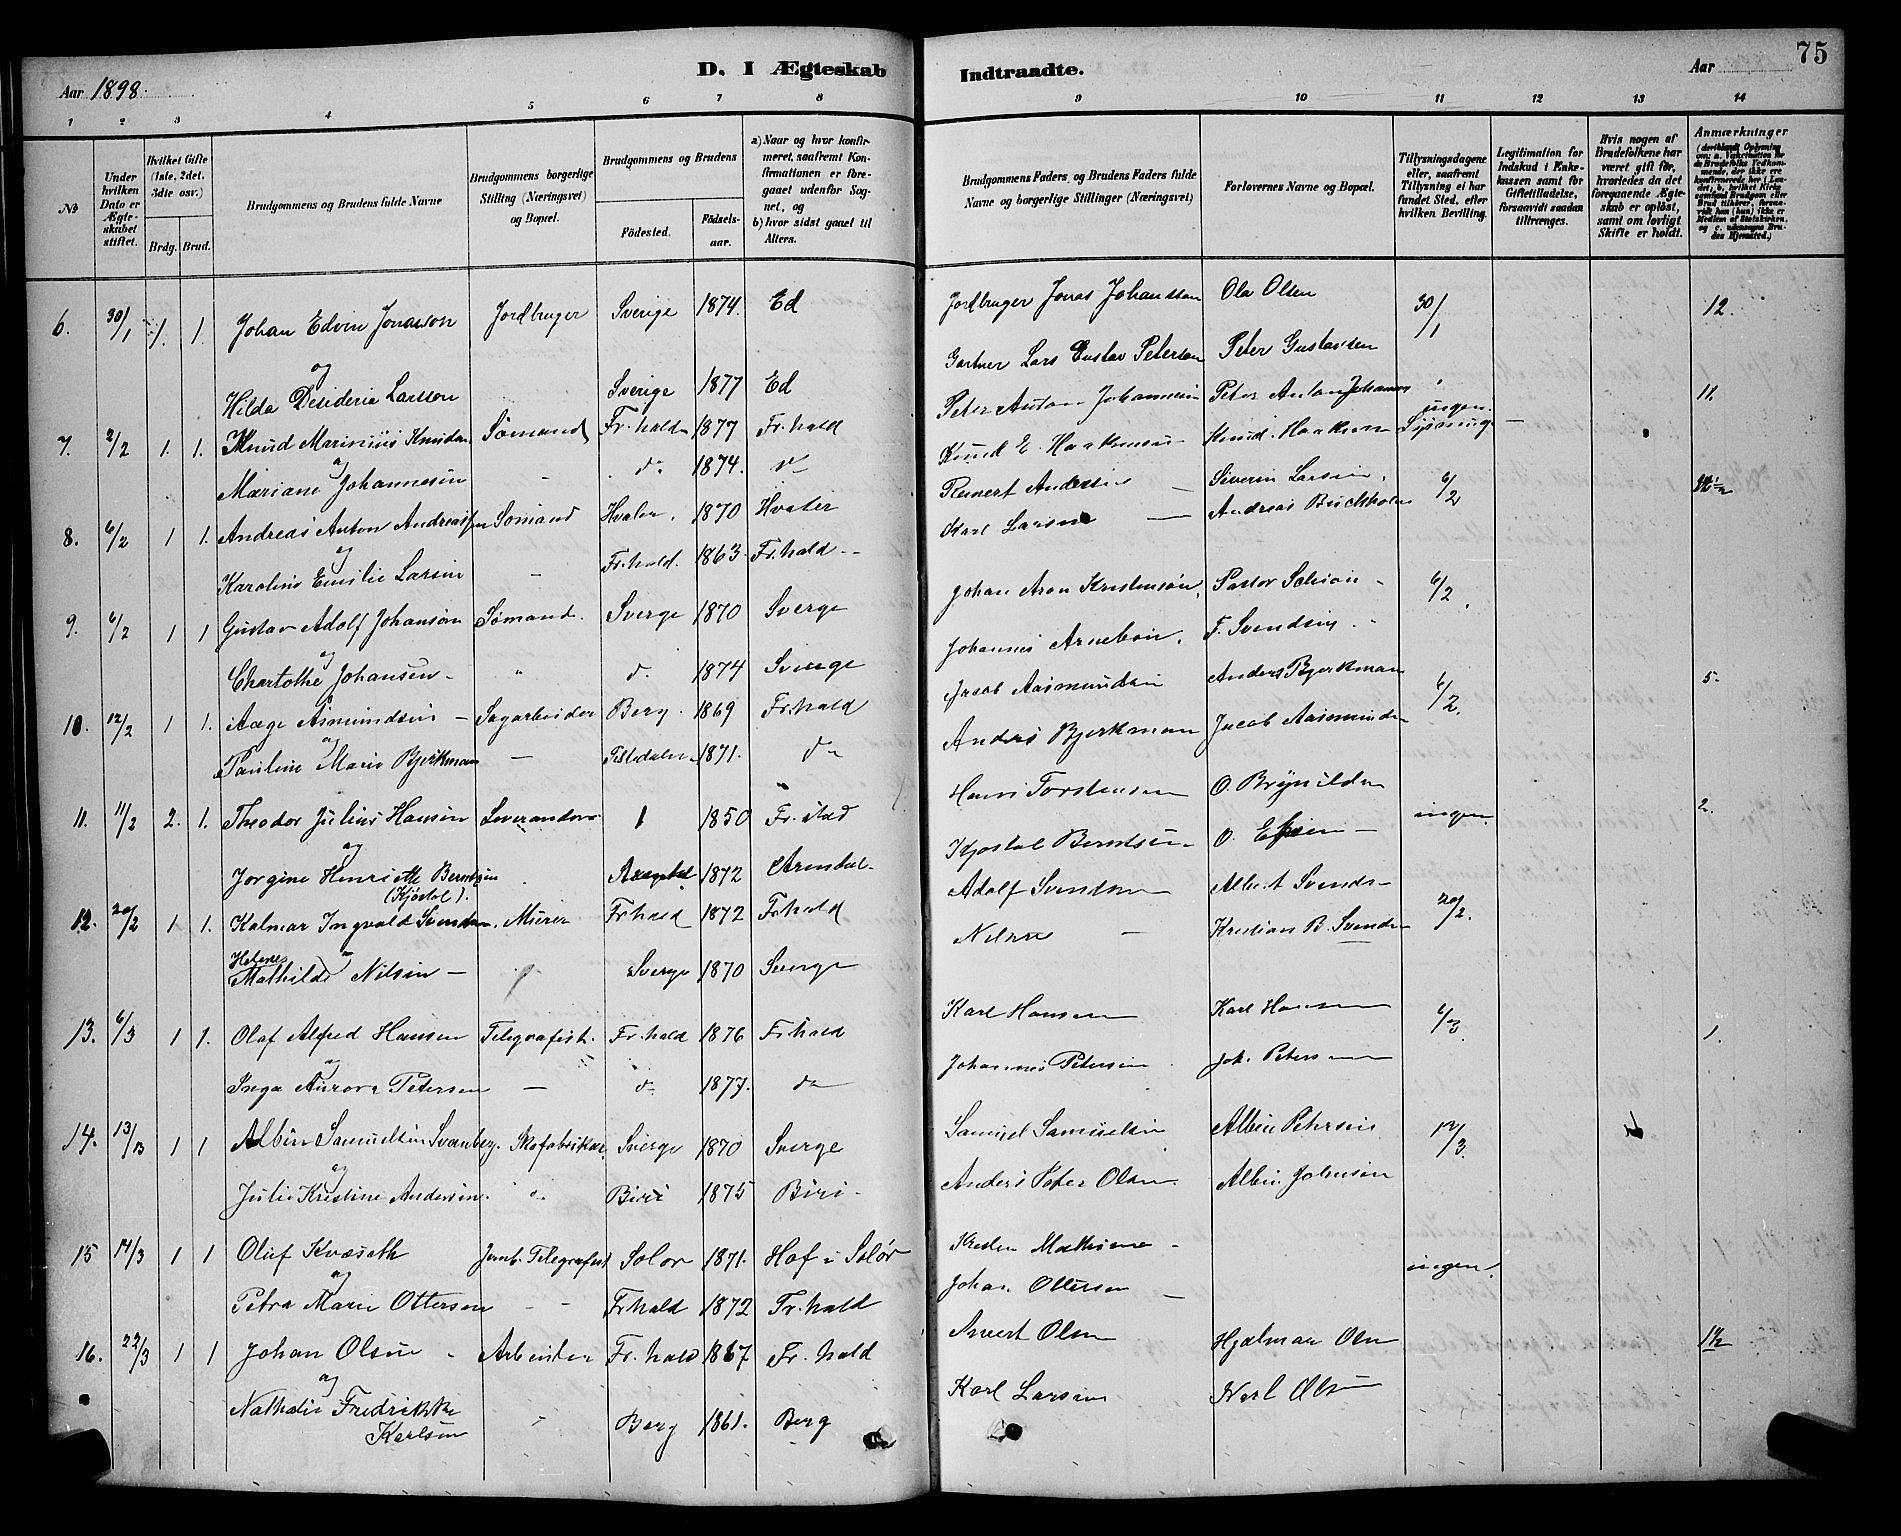 D. I Ægteskab Indtraadte.
75
Aar 1898.
Aar
1 2 3 4 5 6 7 8 9 10 11 12 13 14
No
Under hvilken Dato er Ægteskabet stiftet.
Hvilket Gifte (1ste, 2det, 3dte osv.)
Brdg. Brud.
Brudgommens og Brudens fulde Navne
Brudgommens borgerlige Stilling (Næringsvei) og Bopæl.
Brudgommens og Brudens
Fødested. Fødselsaar.
a) Naar og hvor konfirmeret, saafremt Konfirmationen er foregaaet udenfor Sognet, og
b) hvor sidst gaaet til Alters.
Brudgommens Faders og Brudens Faders fulde Navne og borgerlige Stillinger (Næringsvei)
Forlovernes Navne og Bopæl.
Tillysningsdagene eller, saafremt Tillysning ei har fundet Sted, efter hvilken Bevilling.
Legitimation for Indskud i Enkekassen samt for Giftetilladelse, forsaavidt saadan tiltrænges.
Hvis nogen af Brudefolkene har været gift før, hvorledes da det foregaaende Ægteskab er opløst, samt om lovligt Skifte er holdt.
Anmærkninger
6. 30/1 1. 1. Johan Edvin Jonasson Jordbruger Sverige 1874. Ed Jordbruger Jonas Johansson Ola Olsen 30/1 12.
og
Hilda Desideria Larsson Sverige 1877 Ed Gartner Lars Gustav Peterson Peter Gustavsen
7. 2/2 1. 1. Knud Marinius Knudsen Sømand Fr.hald 1877 Fr.hald Peter Anton Johannesen Peter Anton Johannes ingen Lysning 11.
og
Mariane Johannesen - do 1874. do Knud E. Haakensen Knud Haaksen
8. 6/2 1 1. Andreas Anton Andreassen Sømand Hvaler. 1870 Hvaler Reinert Andersen Siverin Larsen. 6/2
og
Karoline Emilie Larsen - Fr.hald. 1863. Fr.hald Karl Larsen Andreas Buckholm
9. 6/2 1 1 Gustav Adolf Johanson Sømand. Sverge 1870 Sverge Johan Aron Kristenson, Pastor 6/2
og
Johansen " do 1874 Sverige Johannes F. Svendsen
10. 12/2 1 1. Aage Asmundsen Sagarbeider Berg. 1869 Fr.hald Jacob Aasmundsen Anders Bjerkman 6/2. 5.
og
Pauline Marie Bjerkman - Tistedalen 1871. do Anders Bjerkman Jacob Aasmundsen
11. 11/2 2. 1. Theodor Julius Hansen Leverandør 1850 Fr.stad Hans Torstensen O. Brynildsen ingen. 2.
og
Jørgine Henriette Berntsen (Kjøstol). Arendal 1872 Arendal Kjøstol Berntsen O.
12. 20/2 1 1. Kalmar Ingvald Svendsen. Murer Fr.hald 1872 Fr.hald Adolf Svendsen Albert Svends 20/2.
Helene
Mathilde Nilsen - Sverge 1870 Sverge Nilsen Kristian B. Svendsen
13. 6/3 1 1. Olaf Alfred Hansen Telegrafist. Fr.hald 1876 Fr.hald Karl Hansen Karl Hansen 6/3. 1.
og
Inga Aurora Petersen - do 1877. do Johannes Petersen Joh. Petersen
14. 13/3 1 1 Albin Samuelsen Svanberg. Skofabrikar. Sverge 1870 Sverge Samuel Samuelsen Albin Petersen 12/3.
og
Julie Kristine Andersen. " Biri 1875 Biri. Anders Peter Olsen Albin Johnsen
15 14/3 1 1 Oluf Kvæseth Jernb. Telegrafist Solør 1871. Hof i Solør Mathisen ingen.
og
Petra Marie Ottersen - - Fr.hald 1872 Fr.hald Johan Ottersen
16. 22/3 1 1 Johan Olsen Arbeider Fr.hald 1867 Fr.hald Olsen Hjalmar Olsen
og
Nathalie Fredrikke Karlsen " Berg 1861. Berg Karl Larsen Karl Olsen